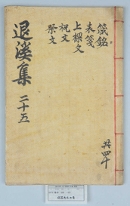 箴銘
表箋
上樑文
祝文
祭文
退溪集
二十五
共四十